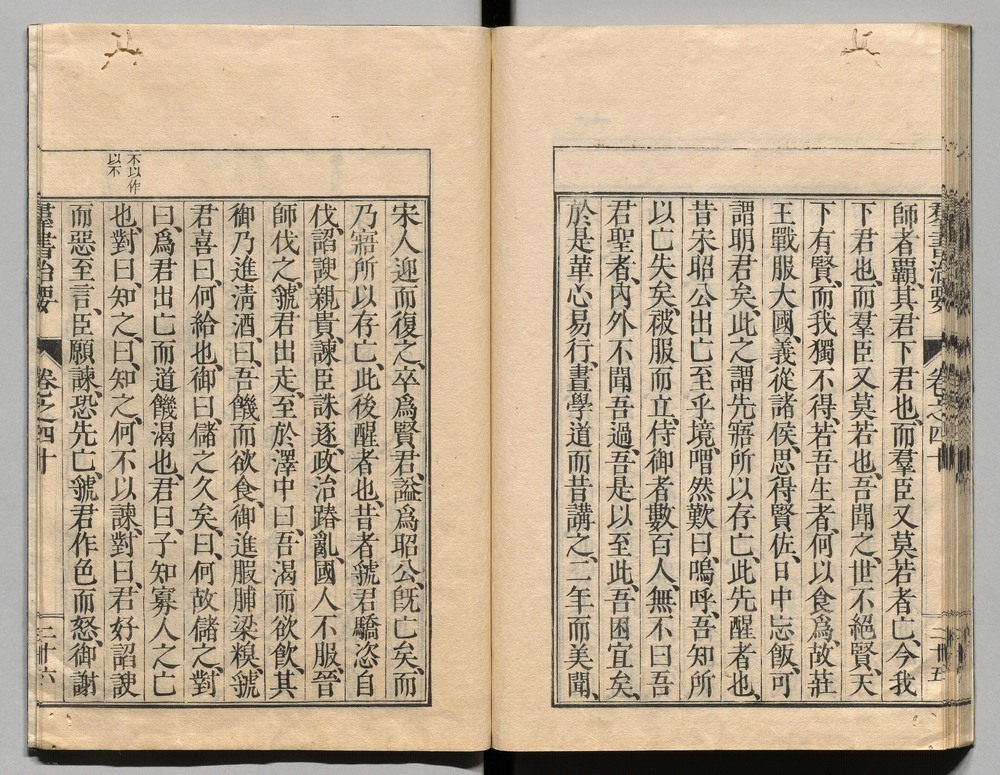 羣書治要 卷之四十 二十五
師者霸、其君下君也、而羣臣又莫若者亡、今我
下君也、而羣臣又莫若也、吾聞之、世不絕賢、天
下有賢、而我獨不得、若吾生者、何以食爲、故莊
王戰服大國、義從諸侯、思得賢佐、日中忘飯、可
謂明君矣、此之謂先寤所以存亡、此先醒者也、
昔宋昭公出亡至乎境、喟然歎曰、嗚呼、吾知所
以亡失矣、被服而立、侍御者數百人、無不曰吾
君聖者、內外不聞吾過、吾是以至此、吾困宜矣、
於是革心易行、晝學道而昔講之、二年而美聞、
宋人迎而復之、卒爲賢君、謚爲昭公、旣亡矣、而
乃寤所以存亡、此後醒者也、昔者虢君驕恣自
伐、諂諛親貴、諫臣誅逐、政治踳亂、國人不服、晉
師伐之、虢君出走、至於澤中曰、吾渴而欲飮、其
御乃進淸酒、曰、吾饑而欲食、御進腶脯梁糗、虢
君喜曰、何給也、御曰、儲之久矣、曰、何故儲之、對
曰、爲君出亡而道饑渴也、君曰、子知寡人之亡
也、對曰、知之、曰、知之、何不以諫、對曰、君好諂諛
而惡至言、臣願諫、恐先亡、虢君作色而怒、御謝
不以作
以不
羣書治要 卷之四十 二十六